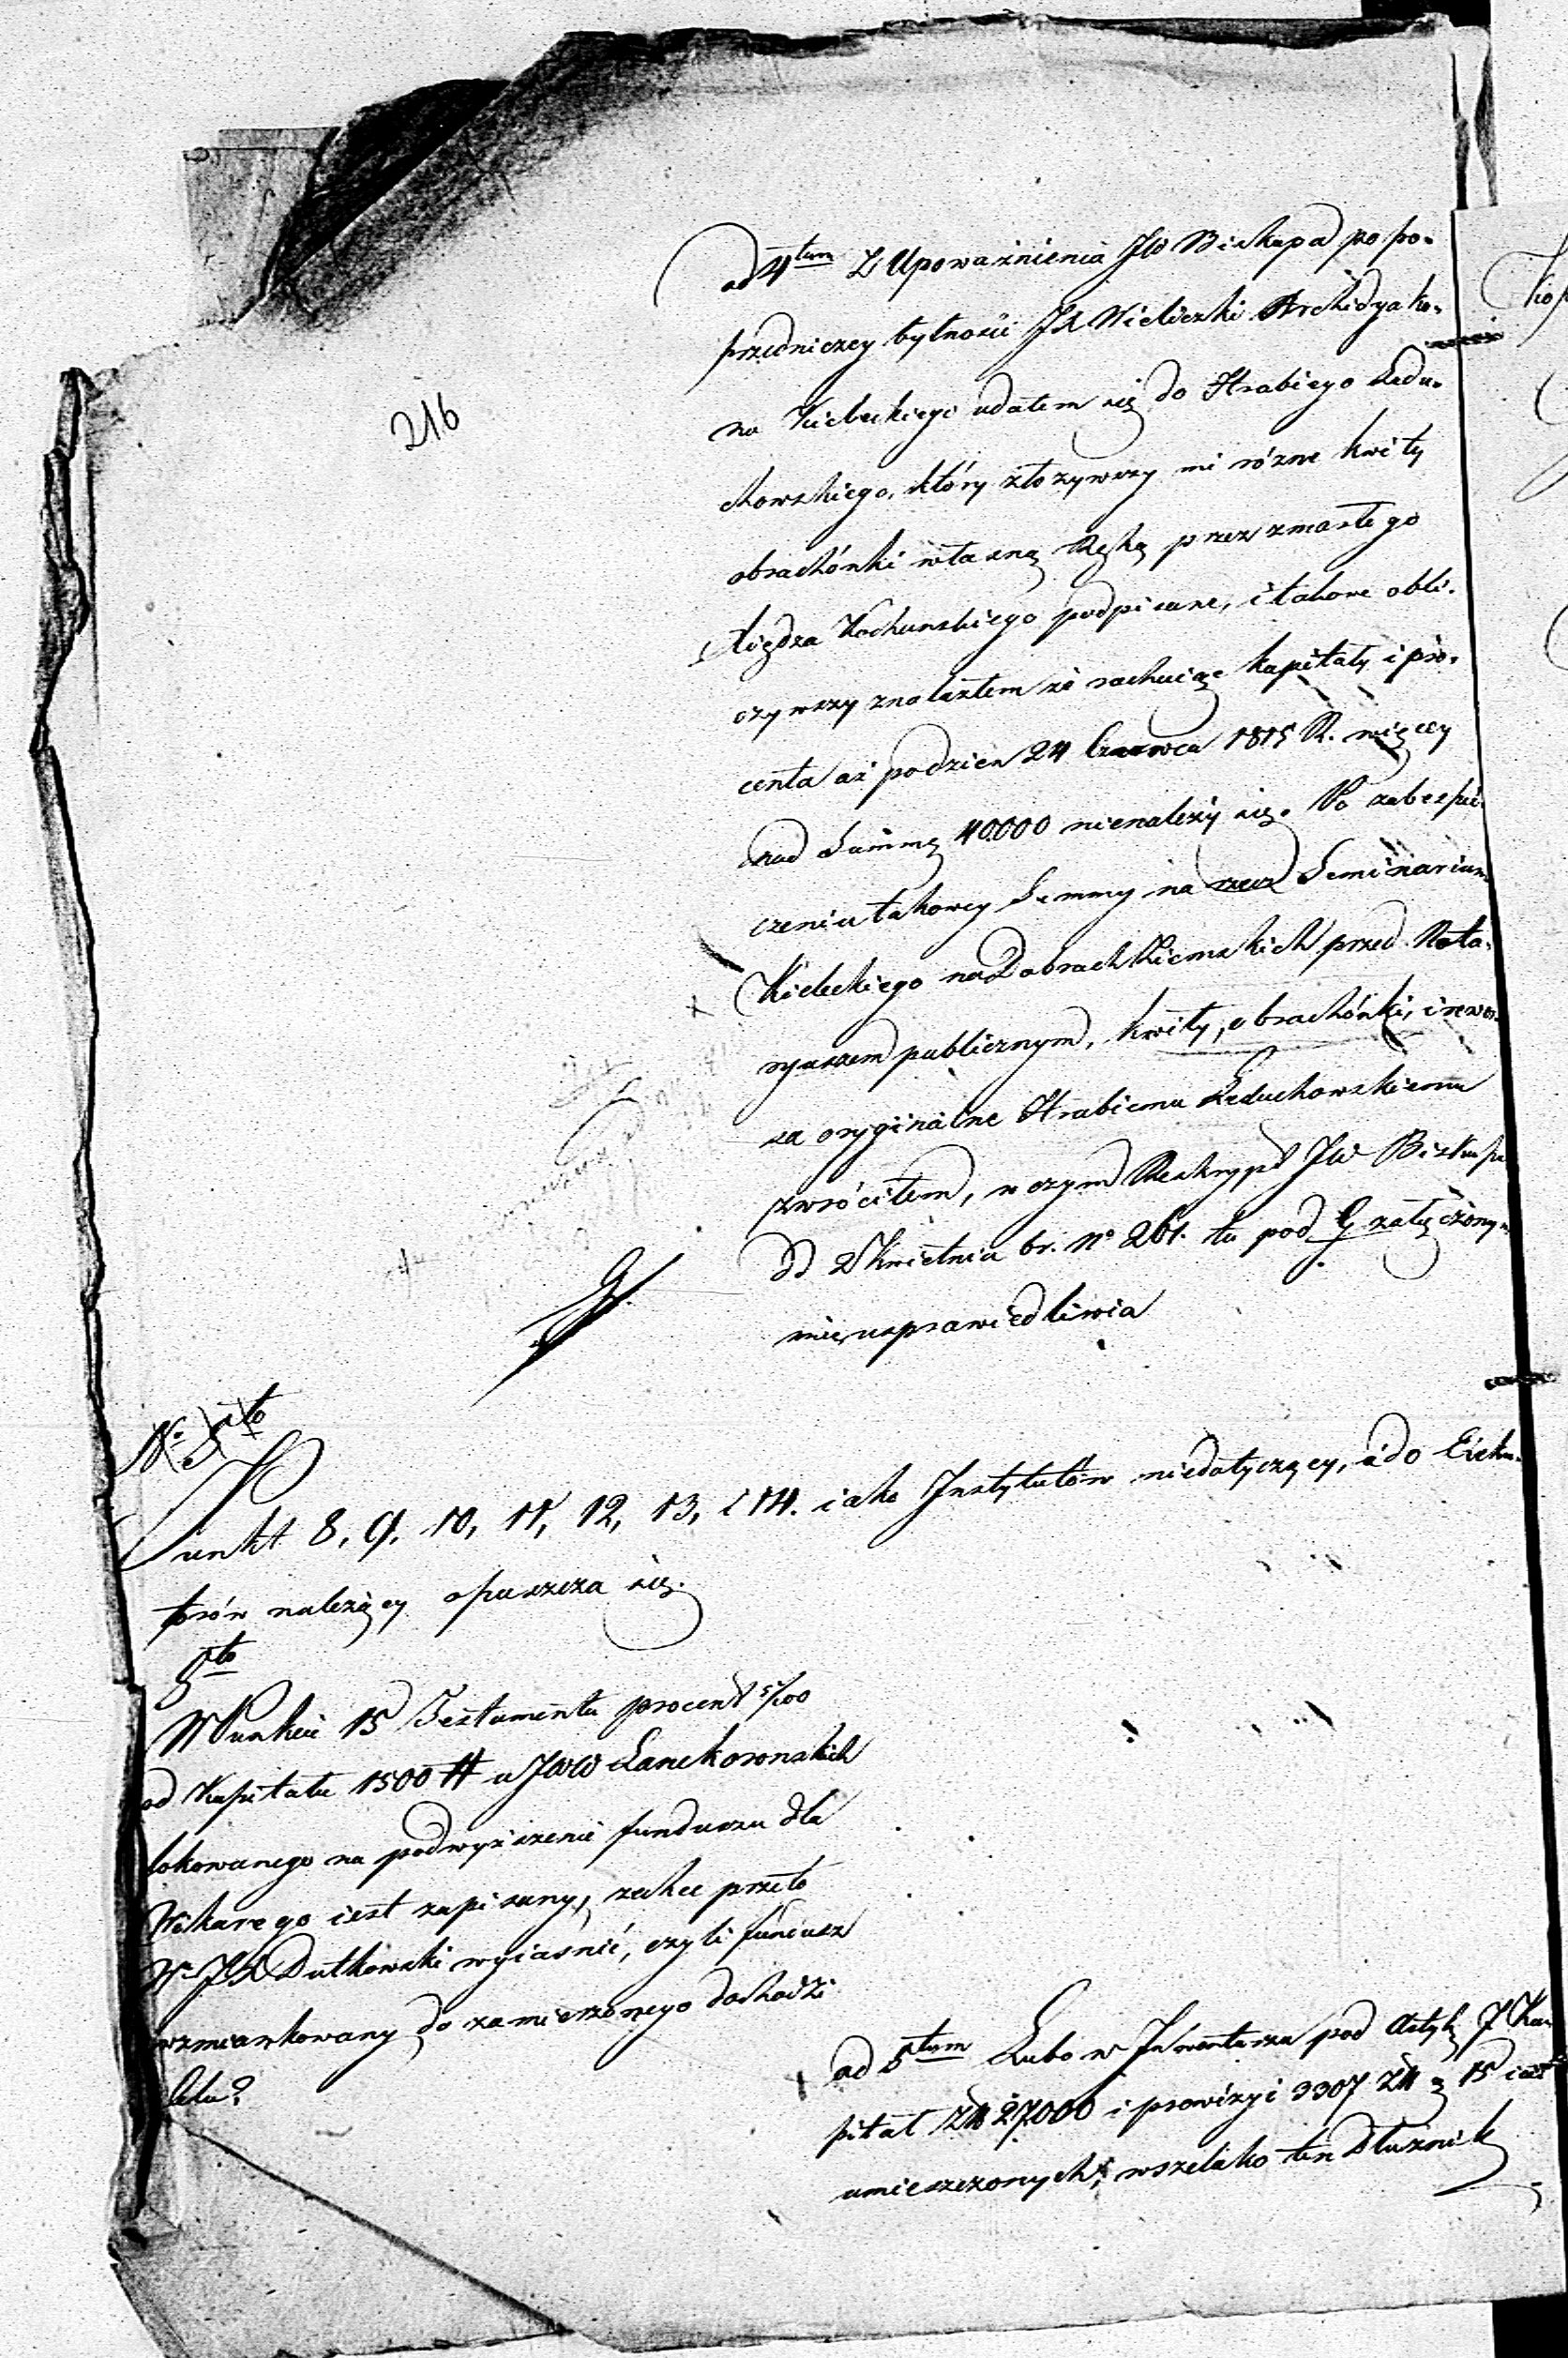 216
ad 4tum Z Upoważnienia JW Biskupa po po-
przedniczey bytności JX Wieliczki Archidyako-
na Kieleckiego udałem się do Hrabiego Ledu-
chowskiego, który złożywszy mi różne kwity
obrachónki własną Ręką przez zmarłego
Xiędza Kochanskiego podpisane, i takowe obli-
czywszy znalazłem że rachuiąc kapitały i pro-
centa aż po dzien 24 Czerwca 1815 R. więcey
nad Summę 40000 nienależy się. Po zabespie-
czeniu takowey Summy na rzecz Seminarium
Kieleckiego na Dobrach Ziemskich przed Nota-
ryuszem publicznym, kwity, obrachónki, i rewer-
sa oryginalne Hrabiemu Leduchowskiemu
zwróciłem, w czym Reskrypt JW Biskupa
dd 2 Kwietnia br. No 261. tu pod G załączony
mię usprawiedliwia
G.
No 5to
Punkt 8, 9, 10, 11, 12, 13, i 14. iako Instytutów niedotyczący, a do Exeku-
torów należący opuszcza się.
5to
W Punkcie 15 Testamentu procent 5/100
od Kapitału 1500 # u JWW Lanckoronskich
lokowanego na podwyższenie funduszu dla
Wikarego iest zapisany, zechce przeto
W JX Dutkowski wyiasnić, czyli fundusz
wzmiankowany do zamierzonego dochodzi
celu?
ad 5tum Lubo w Inwentarzu pod Artyk J Ka-
pitał Zł 27000 i prowizyi 3307 Zł g 15 iest
umieszczonych, wszelako ten Dłużnik